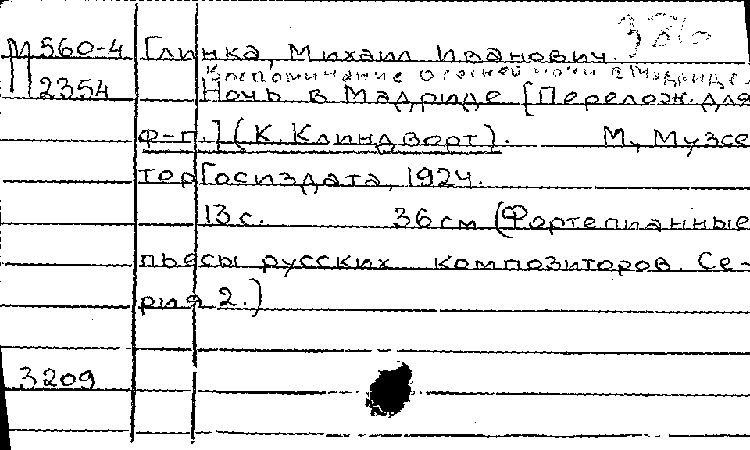 М560-4 Глинка, Михаил Иванович.
Воспоминание о летней ночи в Мадриде.
2354 Ночь в Мадриде [Перелож. для
ф-п.] (К. Клиндворт). М, Музсе
тор Госиздата, 1924.
13 с. 36 см (Фортепианные
пьесы русских композиторов. Се-
рия 2.)
3209